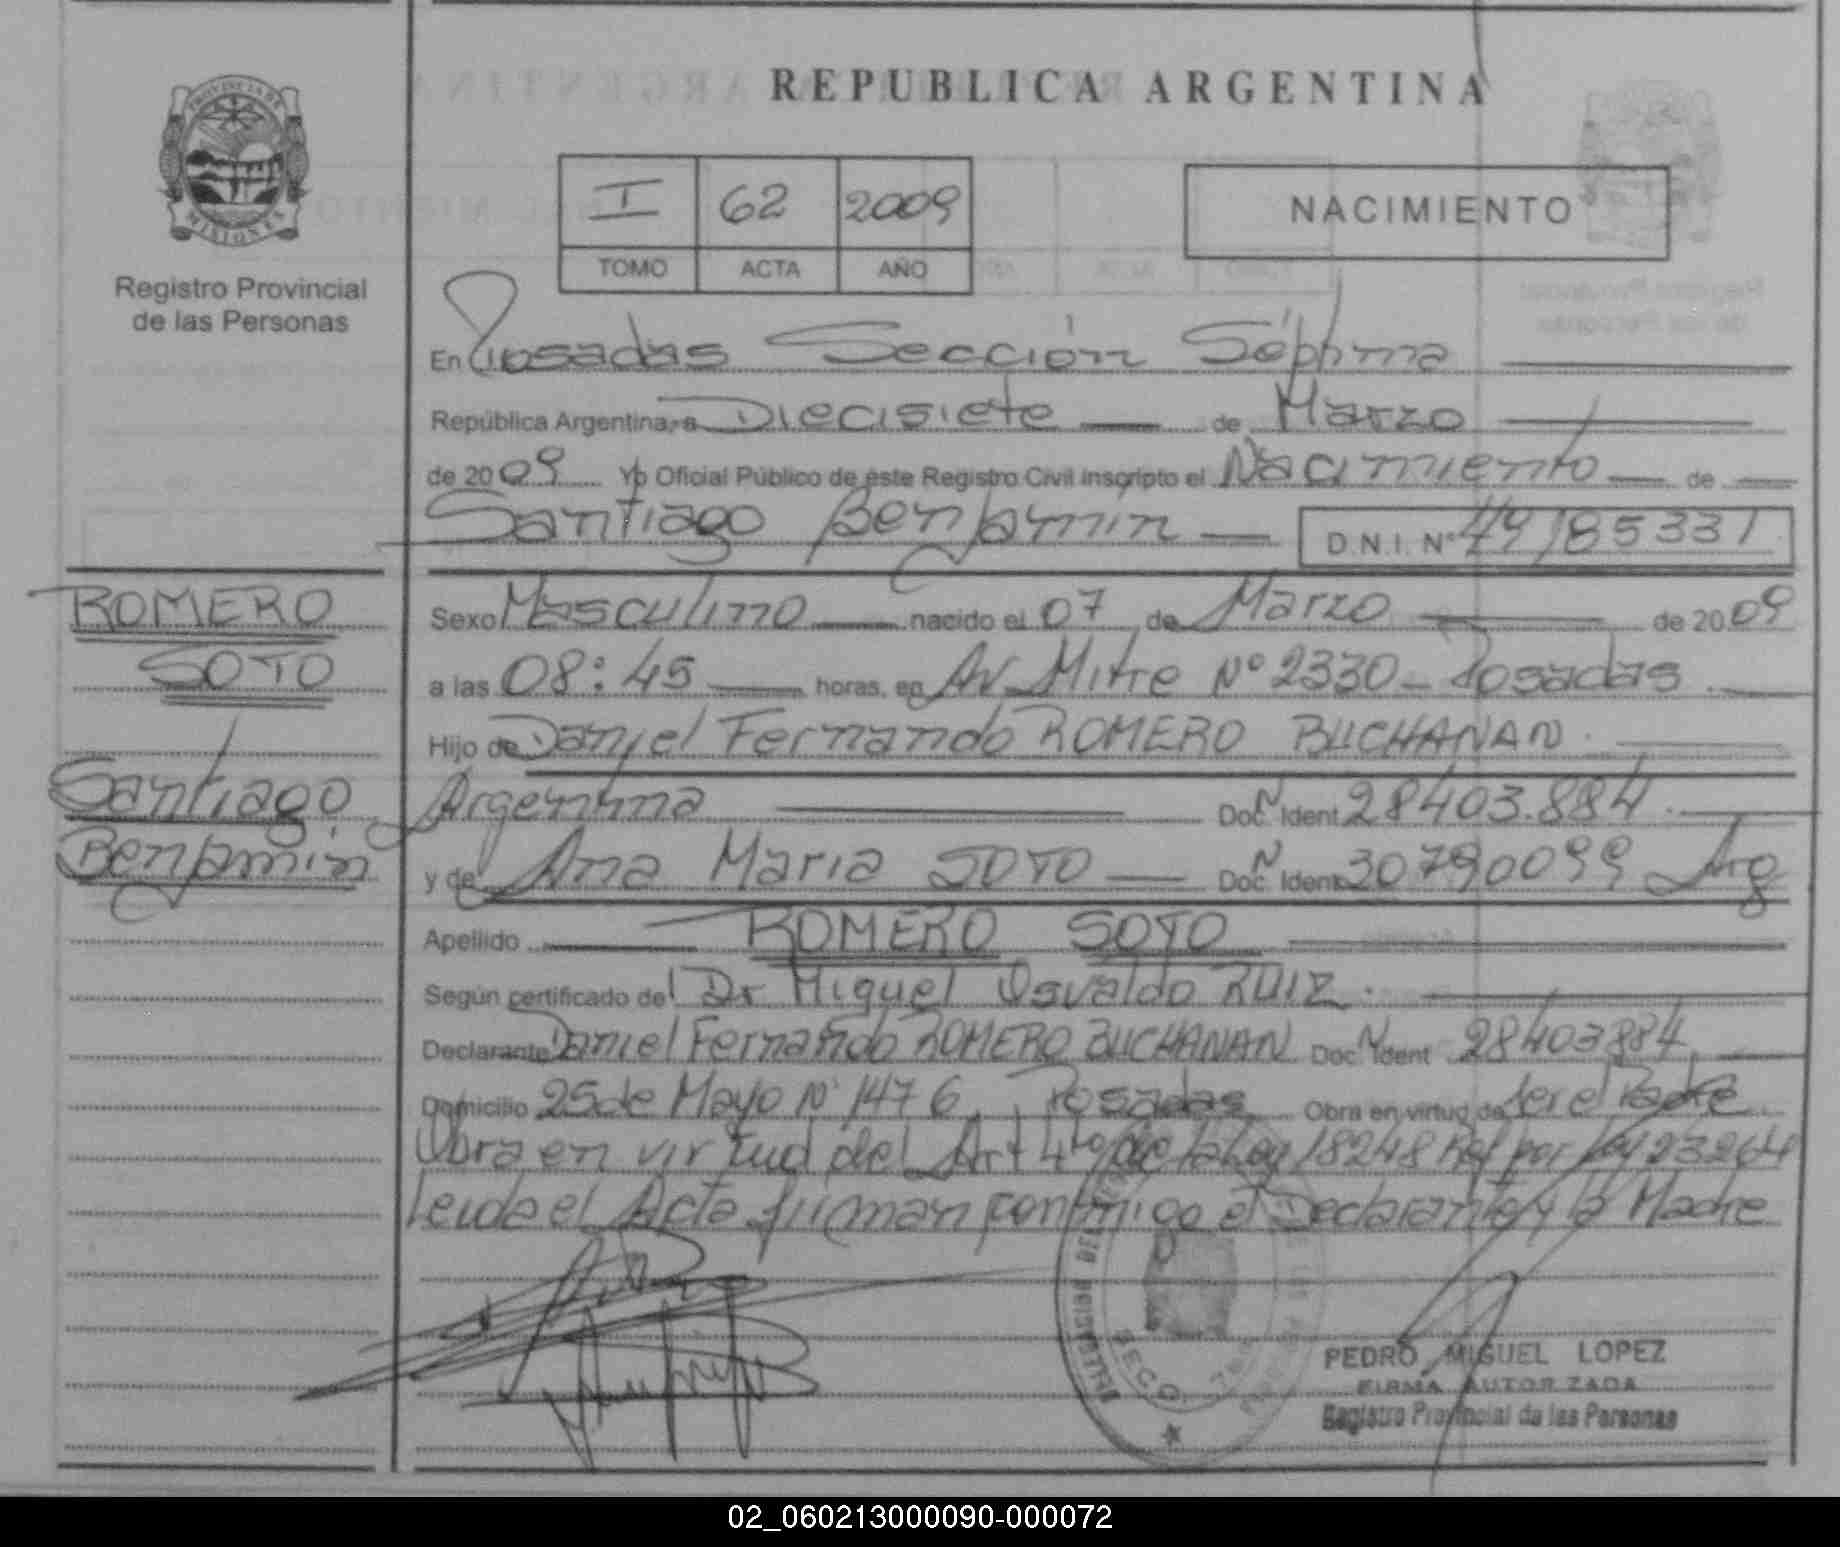 REPUBLICA ARGENTINA
PROVINCIA DE
MISIONES
Registro Provincial
de las Personas
I 62 2009
TOMO ACTA AÑO
NACIMIENTO
En Posadas Sección Séptima
República Argentina, a Diecisiete de Marzo
de 2009 Yo Oficial Público de este Registro Civil inscripto el Nacimiento de
Santiago Benjamín D.N.I. Nº 49185331
ROMERO
SOTO
Santiago
Benjamín
Sexo Masculino nacido el 07 de Marzo de 2009
a las 08:45 horas, en Av. Mitre Nº 2330 - Posadas
Hijo de Daniel Fernando ROMERO BUCHANAN
Argentina Doc. N Ident 28403.884
y de Ana Maria SOTO Doc. N Ident 30790099 Arg
Apellido ROMERO SOTO
Según certificado del Dr Miguel Osvaldo RUIZ
Declarante Daniel Fernando ROMERO BUCHANAN Doc. N Ident 28403884
Domicilio 25 de Mayo Nº 1476, Posadas Obra en virtud de ser el Padre
Obra en virtud del Art 4to de la Ley 18248 Ref por Ley 23264
Leida el Acta firman conmigo el Declarante y la Madre
PEDRO MIGUEL LOPEZ
FIRMA AUTORIZADA
Registro Provincial de las Personas
02_060213000090-000072